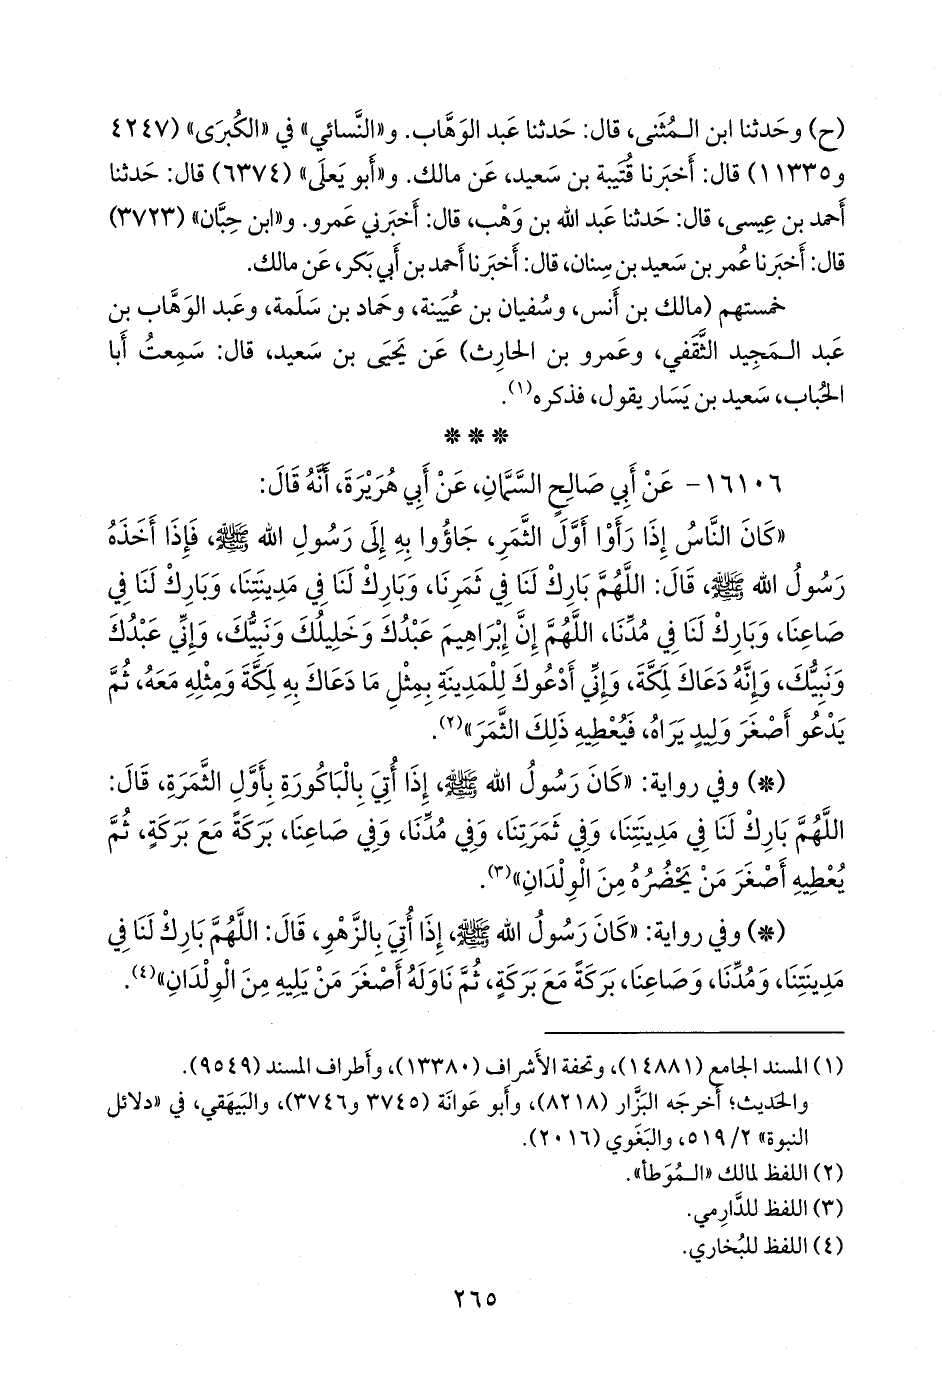 (ح) وحَدثنا ابن الـمُثنى، قال: حَدثنا عَبد الوَهَّاب. و«النَّسائي» في «الكُبرَى» (٤٢٤٧
و١١٣٣٥) قال: أَخبَرنا قُتَيبة بن سَعيد، عَن مالك. و«أَبو يَعلَى» (٦٣٧٤) قال: حَدثنا
أَحمد بن عِيسى، قال: حَدثنا عَبد الله بن وَهْب، قال: أَخبَرني عَمرو. و«ابن حِبَّان» (٣٧٢٣)
قال: أَخبَرنا عُمر بن سَعيد بن سِنان، قال: أَخبَرنا أَحمد بن أَبي بَكر، عَن مالك.
خمستهم (مالك بن أَنس، وسُفيان بن عُيَينة، وحَماد بن سَلَمة، وعَبد الوَهَّاب بن
عَبد الـمَجيد الثَّقَفي، وعَمرو بن الحارِث) عَن يَحيَى بن سَعيد، قال: سَمِعتُ أَبا
الحُباب، سَعيد بن يَسَار يقول، فذكره(١).
* * *
١٦١٠٦- عَنْ أَبِي صَالِحٍ السَّمَّانِ، عَنْ أَبِي هُرَيْرَةَ، أَنَّهُ قَالَ:
«كَانَ النَّاسُ إِذَا رَأَوْا أَوَّلَ الثَّمَرِ، جَاؤُوا بِهِ إِلَى رَسُولِ الله ﷺ، فَإِذَا أَخَذَهُ
رَسُولُ الله ﷺ، قَالَ: اللَّهُمَّ بَارِكْ لَنَا فِي ثَمَرِنَا، وَبَارِكْ لَنَا فِي مَدِينَتِنَا، وَبَارِكْ لَنَا فِي
صَاعِنَا، وَبَارِكْ لَنَا فِي مُدِّنَا، اللَّهُمَّ إِنَّ إِبْرَاهِيمَ عَبْدُكَ وَخَلِيلُكَ وَنَبِيُّكَ، وَإِنِّي عَبْدُكَ
وَنَبِيُّكَ، وَإِنَّهُ دَعَاكَ لِمَكَّةَ، وَإِنِّي أَدْعُوكَ لِلْمَدِينَةِ بِمِثْلِ مَا دَعَاكَ بِهِ لِمَكَّةَ وَمِثْلِهِ مَعَهُ، ثُمَّ
يَدْعُو أَصْغَرَ وَلِيدٍ يَرَاهُ، فَيُعْطِيهِ ذَلِكَ الثَّمَرَ»(٢).
(*) وفي رواية: «كَانَ رَسُولُ الله ﷺ، إِذَا أُتِيَ بِالْبَاكُورَةِ بِأَوَّلِ الثَّمَرَةِ، قَالَ:
اللَّهُمَّ بَارِكْ لَنَا فِي مَدِينَتِنَا، وَفِي ثَمَرَتِنَا، وَفِي مُدِّنَا، وَفِي صَاعِنَا، بَرَكَةً مَعَ بَرَكَةٍ، ثُمَّ
يُعْطِيهِ أَصْغَرَ مَنْ يَحْضُرُهُ مِنَ الْوِلْدَانِ»(٣).
(*) وفي رواية: «كَانَ رَسُولُ الله ﷺ، إِذَا أُتِيَ بِالزَّهْوِ، قَالَ: اللَّهُمَّ بَارِكْ لَنَا فِي
مَدِينَتِنَا، وَمُدِّنَا، وَصَاعِنَا، بَرَكَةً مَعَ بَرَكَةٍ، ثُمَّ نَاوَلَهُ أَصْغَرَ مَنْ يَلِيهِ مِنَ الْوِلْدَانِ»(٤).
(١) المسند الجامع (١٤٨٨١)، وتحفة الأَشراف (١٣٣٨٠)، وأَطراف المسند (٩٥٤٩).
والحَديث؛ أَخرجَه البَزَّار (٨٢١٨)، وأَبو عَوانَة (٣٧٤٥ و٣٧٤٦)، والبَيهَقي، في «دلائل
النبوة» ٢/ ٥١٩، والبَغَوي (٢٠١٦).
(٢) اللفظ لمالك «الـمُوَطأ».
(٣) اللفظ للدَّارِمي.
(٤) اللفظ للبُخاري.
٢٦٥